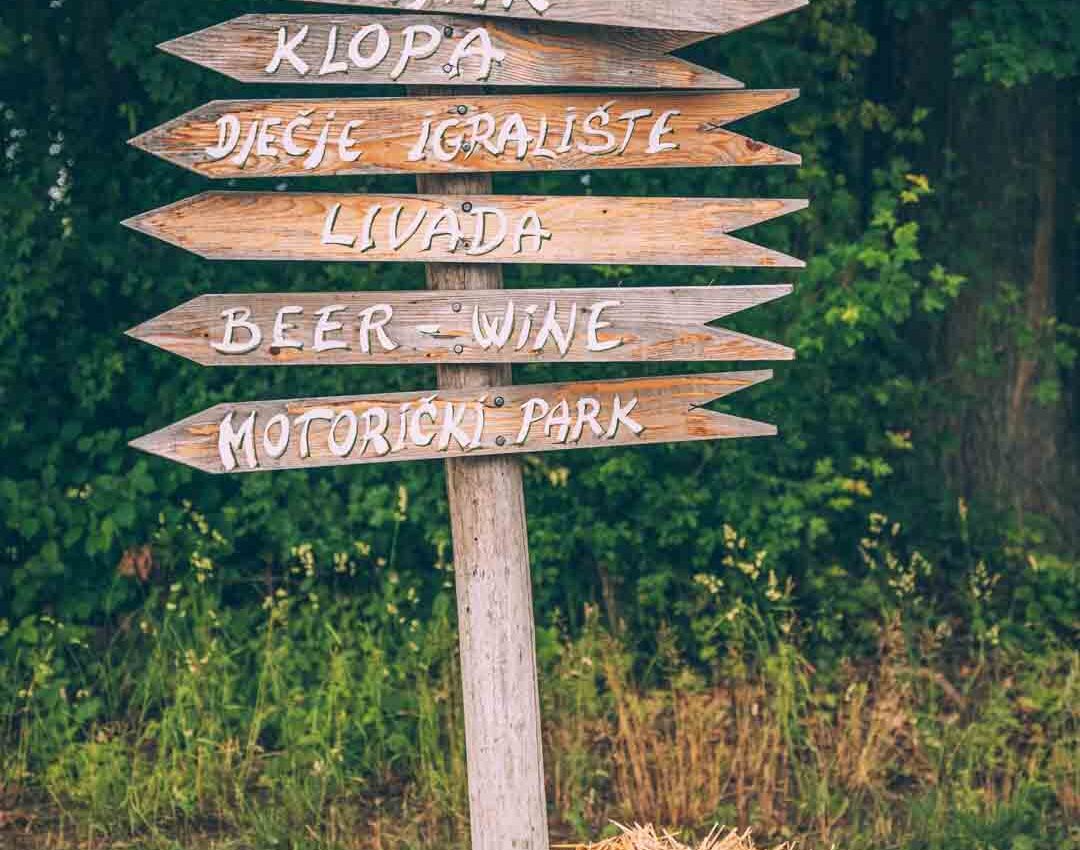 KLOPA
DJEČJE IGRALIŠTE
LIVADA
BEER - WINE
MOTORIČKI PARK